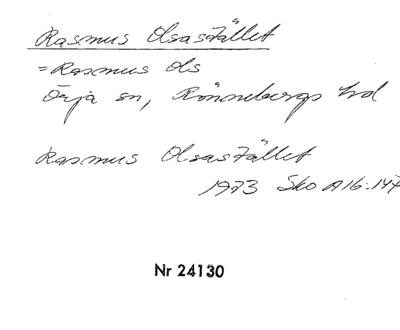 Rasmus Olsastället
= Rasmus Ols
Örja sn, Rönnebergs hd
Rasmus Olsastället
1973 Sko A16:147
Nr 24130